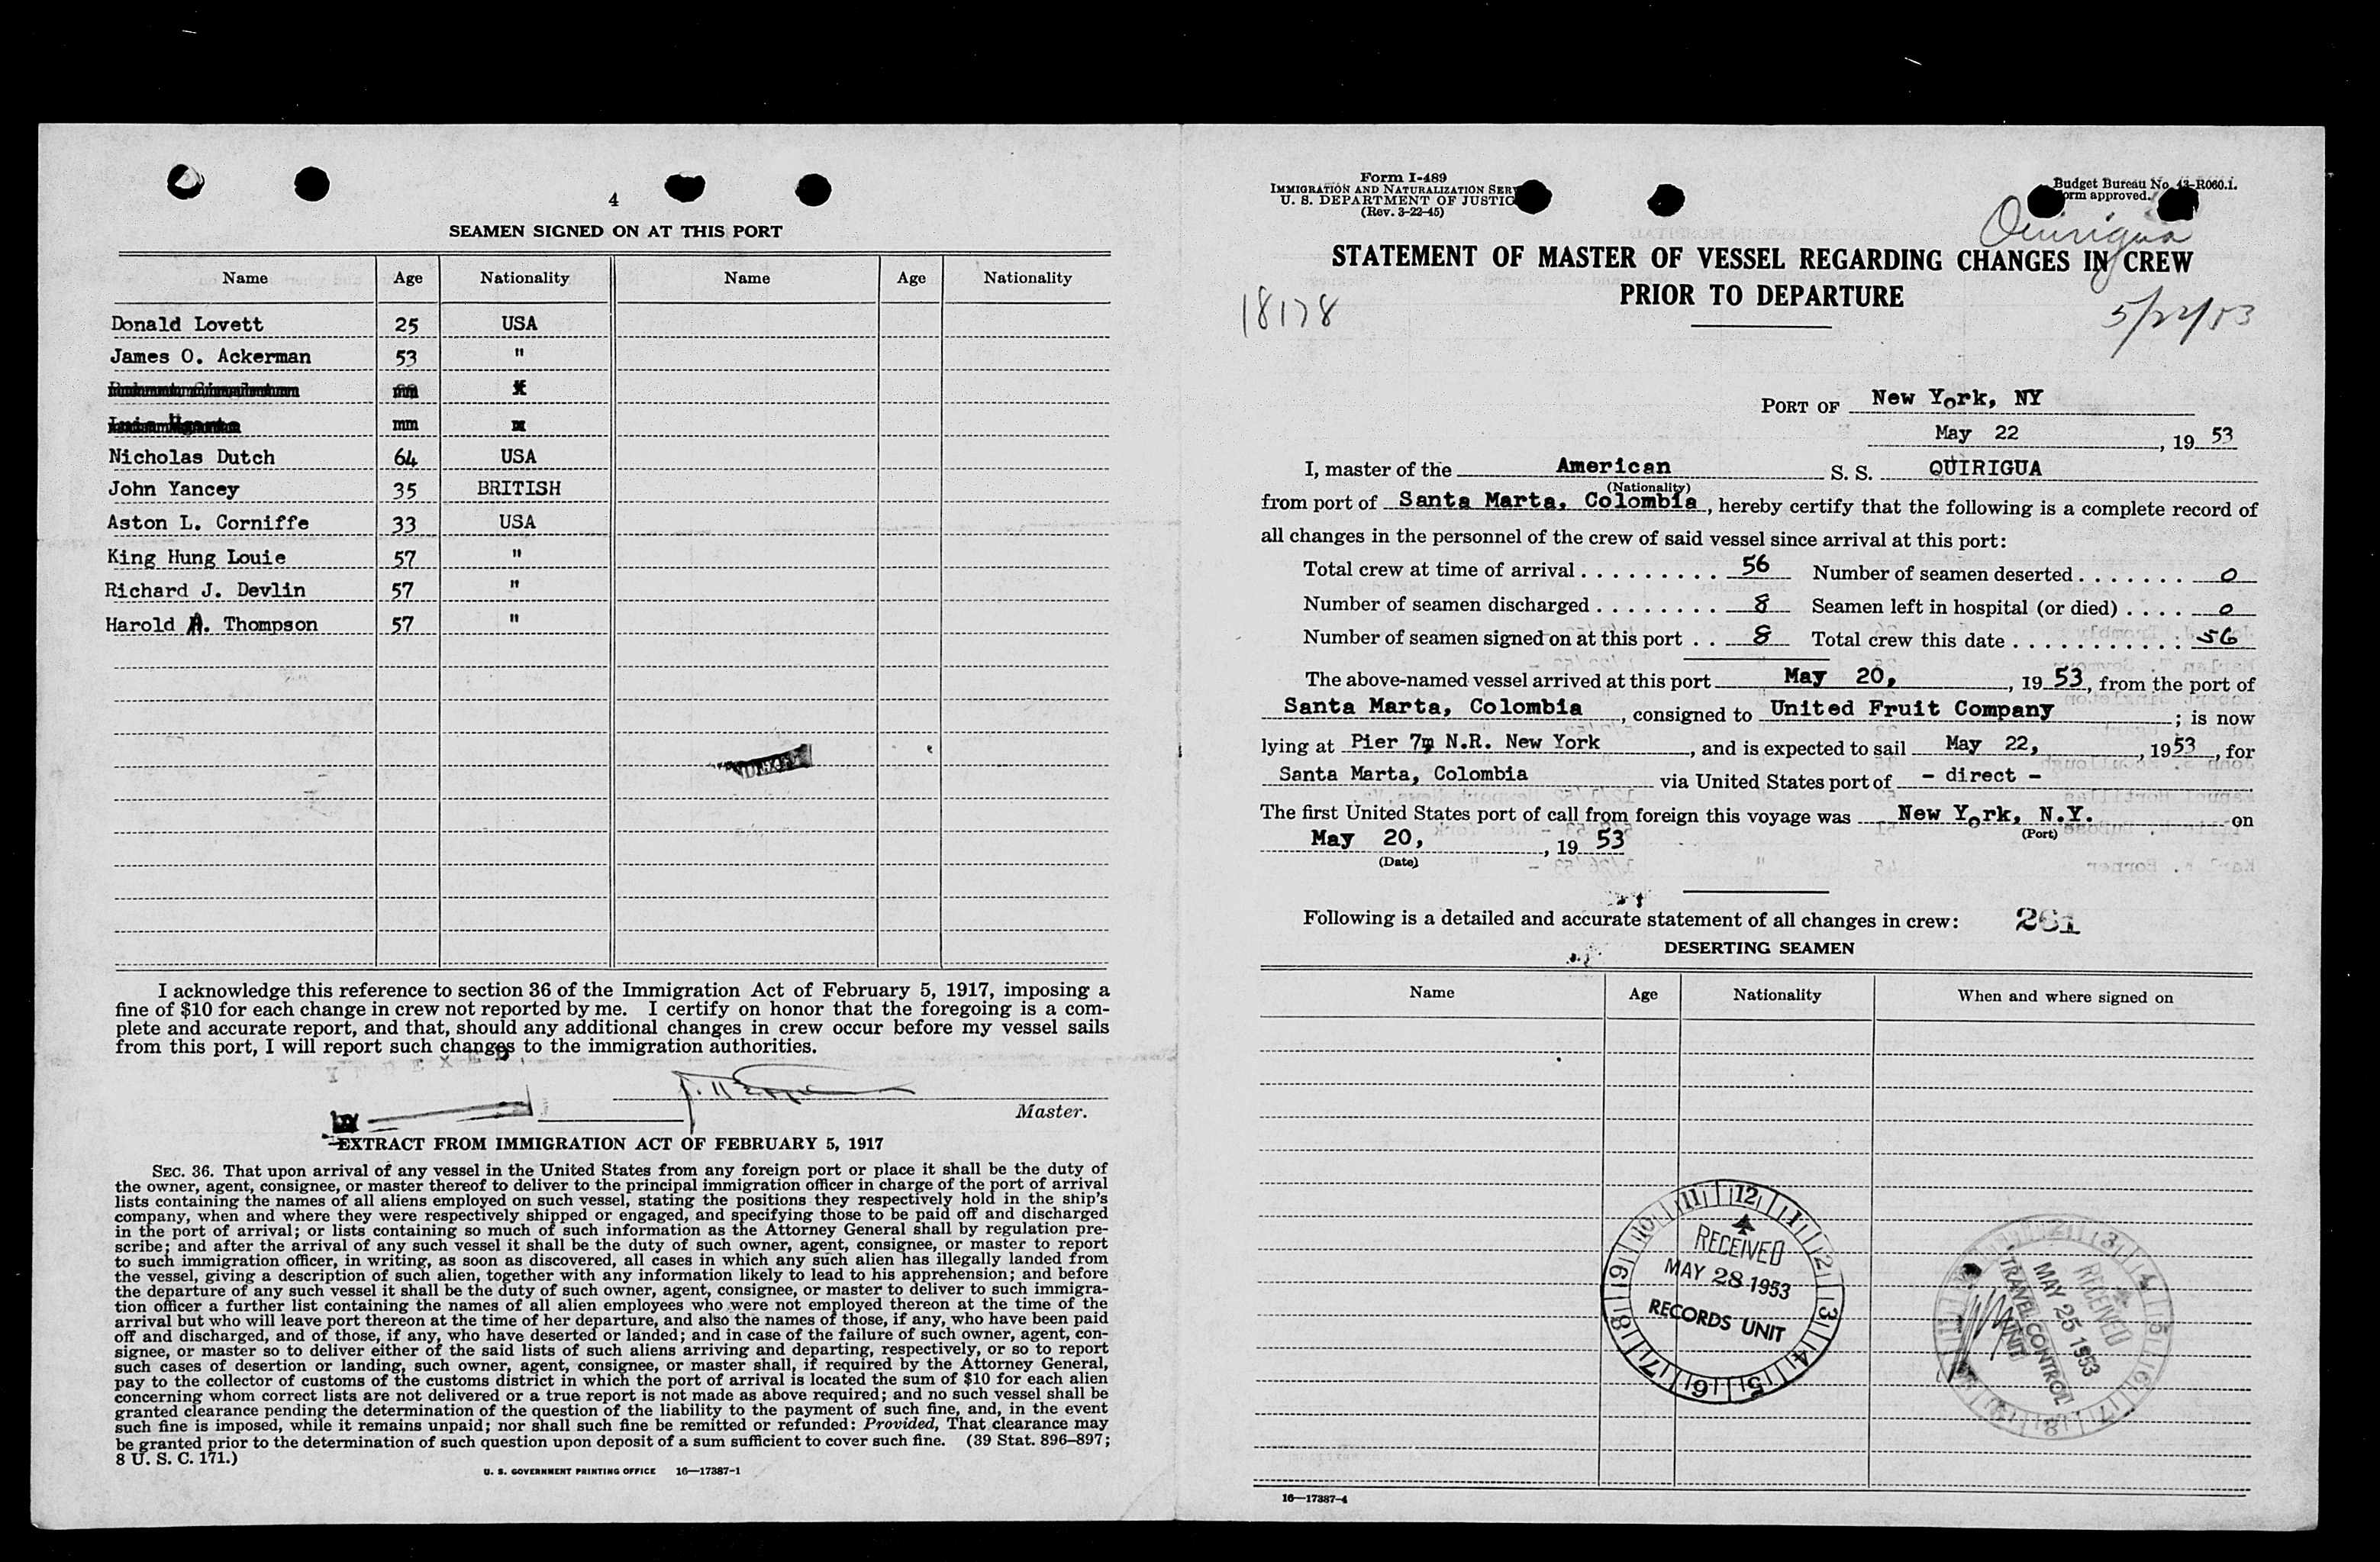 4
SEAMEN SIGNED ON AT THIS PORT
Name Age Nationality Name Age Nationality
Donald Lovett 25 USA
James O. Ackerman 53 "
mm
Nicholas Dutch 64 USA
John Yancey 35 BRITISH
Aston L. Corniffe 33 USA
King Hung Louie 57 "
Richard J. Devlin 57 "
Harold A. Thompson 57 "
I acknowledge this reference to section 36 of the Immigration Act of February 5, 1917, imposing a
fine of $10 for each change in crew not reported by me. I certify on honor that the foregoing is a com-
plete and accurate report, and that, should any additional changes in crew occur before my vessel sails
from this port, I will report such changes to the immigration authorities.
Master.
EXTRACT FROM IMMIGRATION ACT OF FEBRUARY 5, 1917
SEC. 36. That upon arrival of any vessel in the United States from any foreign port or place it shall be the duty of
the owner, agent, consignee, or master thereof to deliver to the principal immigration officer in charge of the port of arrival
lists containing the names of all aliens employed on such vessel, stating the positions they respectively hold in the ship's
company, when and where they were respectively shipped or engaged, and specifying those to be paid off and discharged
in the port of arrival; or lists containing so much of such information as the Attorney General shall by regulation pre-
scribe; and after the arrival of any such vessel it shall be the duty of such owner, agent, consignee, or master to report
to such immigration officer, in writing, as soon as discovered, all cases in which any such alien has illegally landed from
the vessel, giving a description of such alien, together with any information likely to lead to his apprehension; and before
the departure of any such vessel it shall be the duty of such owner, agent, consignee, or master to deliver to such immigra-
tion officer a further list containing the names of all alien employees who were not employed thereon at the time of the
arrival but who will leave port thereon at the time of her departure, and also the names of those, if any, who have been paid
off and discharged, and of those, if any, who have deserted or landed; and in case of the failure of such owner, agent, con-
signee, or master so to deliver either of the said lists of such aliens arriving and departing, respectively, or so to report
such cases of desertion or landing, such owner, agent, consignee, or master shall, if required by the Attorney General,
pay to the collector of customs of the customs district in which the port of arrival is located the sum of $10 for each alien
concerning whom correct lists are not delivered or a true report is not made as above required; and no such vessel shall be
granted clearance pending the determination of the question of the liability to the payment of such fine, and, in the event
such fine is imposed, while it remains unpaid; nor shall such fine be remitted or refunded: Provided, That clearance may
be granted prior to the determination of such question upon deposit of a sum sufficient to cover such fine. (39 Stat. 896–897;
8 U. S. C. 171.)
U. S. GOVERNMENT PRINTING OFFICE 16—17387-1
Form I-489
IMMIGRATION AND NATURALIZATION SER
U. S. DEPARTMENT OF JUSTIC
(Rev. 3-22-45)
Budget Bureau No. 43-R060.1.
orm approved.
Quirigua
STATEMENT OF MASTER OF VESSEL REGARDING CHANGES IN CREW
PRIOR TO DEPARTURE
18178
5/22/53
PORT OF New York, NY
May 22, 19 53
I, master of the American S. S. QUIRIGUA
(Nationality)
from port of Santa Marta, Colombia, hereby certify that the following is a complete record of
all changes in the personnel of the crew of said vessel since arrival at this port:
Total crew at time of arrival . . . . . . . . . 56 Number of seamen deserted . . . . . . . 0
Number of seamen discharged . . . . . . . . 8 Seamen left in hospital (or died) . . . . 0
Number of seamen signed on at this port . . 8 Total crew this date . . . . . . . . . . . . 56
The above-named vessel arrived at this port May 20, , 19 53, from the port of
Santa Marta, Colombia, consigned to United Fruit Company ; is now
lying at Pier 7 N.R. New York, and is expected to sail May 22, , 1953, for
Santa Marta, Colombia via United States port of - direct -
The first United States port of call from foreign this voyage was New York, N.Y. on
(Port)
May 20, , 19 53
(Date)
Following is a detailed and accurate statement of all changes in crew: 261
DESERTING SEAMEN
Name Age Nationality When and where signed on
11 12 1 2 3 4 5 6 7 8 9 10
RECEIVED
MAY 28 1953
RECORDS UNIT
RECEIVED
MAY 25 1953
TRAVEL CONTROL
UNIT
16—17387-4